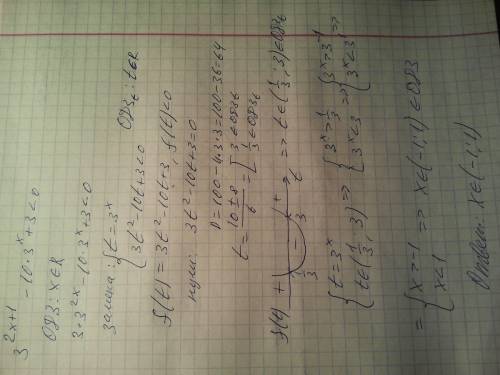 3^(2x+1) - 10·3^x + 3 < 0
ОДЗ: x∈R
3·3^(2x) - 10·3^x + 3 < 0
Замена: { t = 3^x
{ 3t² - 10t + 3 < 0 ОДЗt: t∈R
f(t) = 3t² - 10t + 3, f(t) < 0
нули: 3t² - 10t + 3 = 0
D = 100 - 4·3·3 = 100 - 36 = 64
t = (10 ± 8)/6 = [ 3 ∈ ОДЗt
[ 1/3 ∈ ОДЗt
f(t) + - + t => t∈(1/3; 3) ∈ ОДЗt
1/3 3
{ t = 3^x => { 3^x > 1/3 => { 3^x > 3^-1 =>
{ t∈(1/3; 3) { 3^x < 3 { 3^x < 3^1
= { x > -1 => x∈(-1; 1) ∈ ОДЗ
{ x < 1
Ответ: x∈(-1; 1)